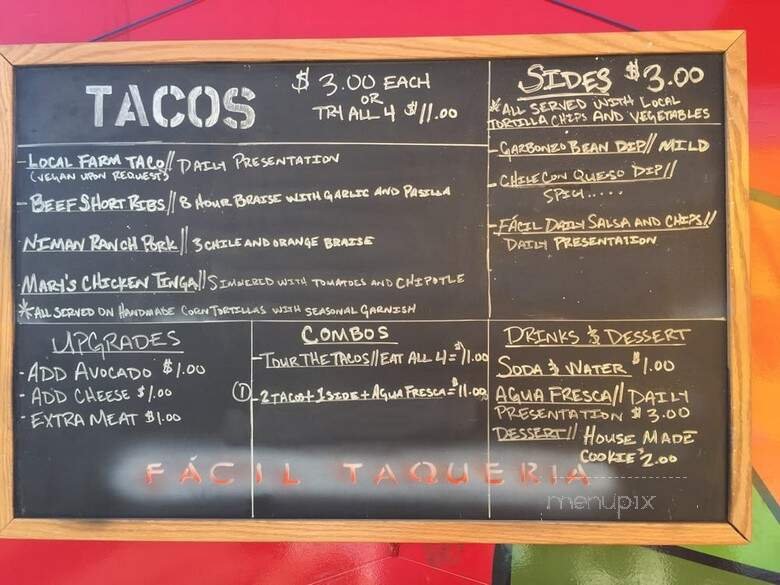 TACOS
$3.00 EACH
OR
TRY ALL 4 $11.00
- LOCAL FARM TACO // DAILY PRESENTATION
(VEGAN UPON REQUEST)
- BEEF SHORT RIBS // 8 HOUR BRAISE WITH GARLIC AND PASILLA
NIMAN RANCH PORK // 3 CHILE AND ORANGE BRAISE
MARY'S CHICKEN TINGA // SIMMERED WITH TOMATOES AND CHIPOTLE
*ALL SERVED ON HANDMADE CORN TORTILLAS WITH SEASONAL GARNISH
SIDES $3.00
*ALL SERVED WITH LOCAL
TORTILLA CHIPS AND VEGETABLES
- GARBONZO BEAN DIP // MILD
- CHILE CON QUESO DIP //
SPICY.....
- FÁCIL DAILY SALSA AND CHIPS //
DAILY PRESENTATION
UPGRADES
- ADD AVOCADO $1.00
- ADD CHEESE $1.00
- EXTRA MEAT $1.00
COMBOS
- TOUR THE TACOS // EAT ALL 4 = $11.00
① - 2 TACOS + 1 SIDE + AGUA FRESCA = $11.00
DRINKS & DESSERT
SODA & WATER $1.00
AGUA FRESCA // DAILY
PRESENTATION $3.00
DESSERT // HOUSE MADE
COOKIE $2.00
FÁCIL TAQUERIA
menupix